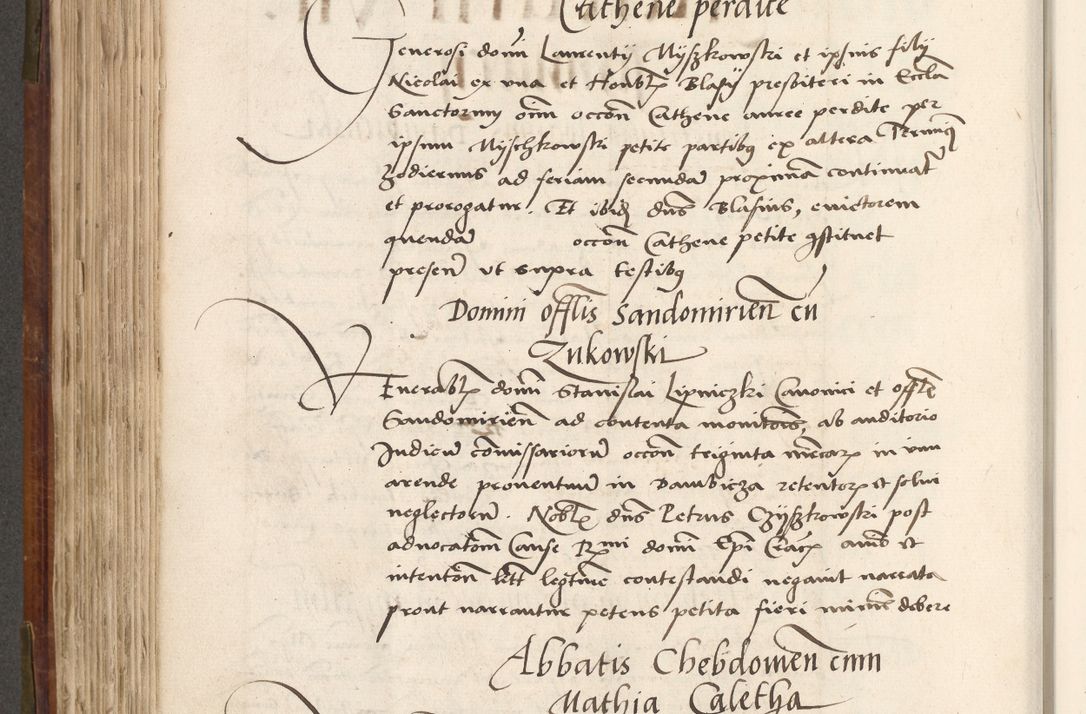 Cathene perdite
Generosi domi Laurentij Myszkowski et ipsius filij
Nicolai ex vna et Honobl Blasij presbiteri in Eccla
Sanctorum oim occon Cathene auree perdite per
ipsum Myschkowski petite partibus ex altera Terminus
hodiernus ad feriam secundam proximam continuat
et prorogatur. Et ibidem dns Blasius, euictorem
quendam occon Cathene petite constituet
presen vt supra testibus
Domini offlis Sandomirien cu
Zukowski
Venerabl domi Stanislai Lipniczki Canonici et offl
Sandomirien ad contenta monitoris, ab auditorio
Judicum comissariorum occon triginta mrcar in vim
arende prouentuum in retentor et solui
neglectorum. Nobl dns Petrus post
aduocatom Cause Rmi domi Epi Crac et
intenton litt legtime contestandi negauit narrata
prout narrantur petens petita fieri minime debere
Abbatis Chebdowien cum
Mathia Caletha